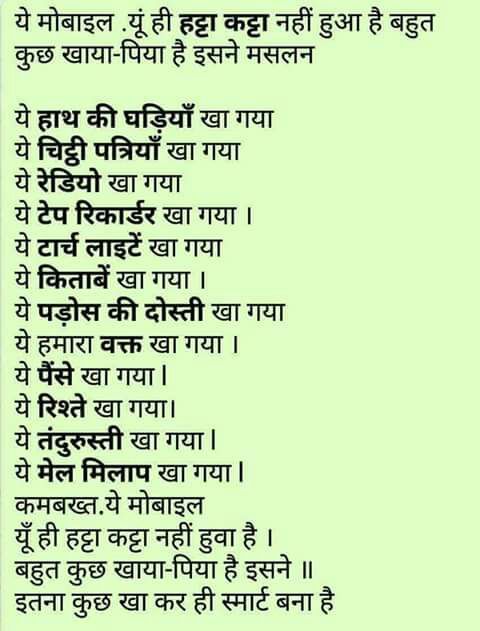 ये मोबाइल .यूं ही हट्टा कट्टा नहीं हुआ है बहुत
कुछ खाया-पिया है इसने मसलन
ये हाथ की घड़ियाँ खा गया
ये चिट्ठी पत्रियाँ खा गया
ये रेडियो खा गया
ये टेप रिकार्डर खा गया ।
ये टार्च लाइटें खा गया
ये किताबें खा गया ।
ये पड़ोस की दोस्ती खा गया
ये हमारा वक्त खा गया ।
ये पैंसे खा गया।
ये रिश्ते खा गया।
ये तंदुरुस्ती खा गया।
ये मेल मिलाप खा गया।
कमबख्त.ये मोबाइल
यूँ ही हट्टा कट्टा नहीं हुवा है ।
बहुत कुछ खाया-पिया है इसने ॥
इतना कुछ खा कर ही स्मार्ट बना है